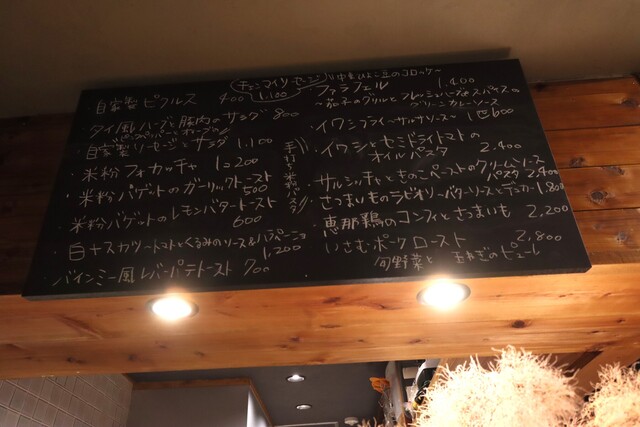 自家製 ピクルス 400
1.100
タイ風ハーブと豚肉のサラダ 800
自家製ソーセージとサラダ 1.100
米粉フォカッチャ 1=200
米粉バゲットのガーリックトースト 500
米粉バゲットのレモンバタートースト 600
トマトとくるみのソース&ハラペーニョ 1,200
バインミー風レバーパテトースト 700
手打ち米粉パスタ
中東ひよこ豆のコロッケ
ファラフェル 1.400
〜茄子のグリルとフレッシュハーブとスパイスのグリーンカレーソース
・イワシフライ〜サルサソース〜 1匹600
・イワシとセミドライトマトのオイルパスタ 2.400
サルシッチャときのこペーストのクリームソースパスタ 2.400
さつまいものラビオリ〜バターソースと 1.800
恵那鶏のコンフィとさつまいも 2,200
いさむポークロースト 2,800
旬野菜と 玉ねぎのピューレ